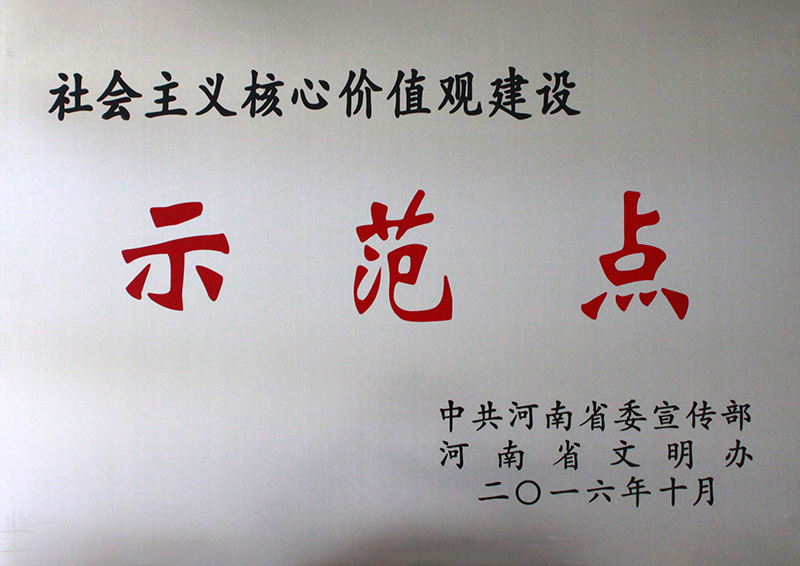 社会主义核心价值观建设
示范点
中共河南省委宣传部
河南省文明办
二〇一六年十月